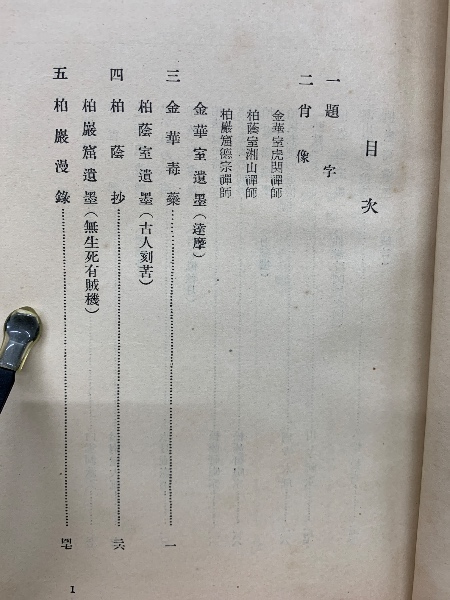 目次
一 題字
二 肖像
金華室虎関禪師
柏蔭室湘山禪師
柏巖窟德宗禪師
金華室遺墨(達摩)
三 金華毒藥……一
柏蔭室遺墨(古人刻苦)
四 柏蔭抄……三六
柏巖窟遺墨(無生死有賊機)
五 柏巖漫錄……四七
1